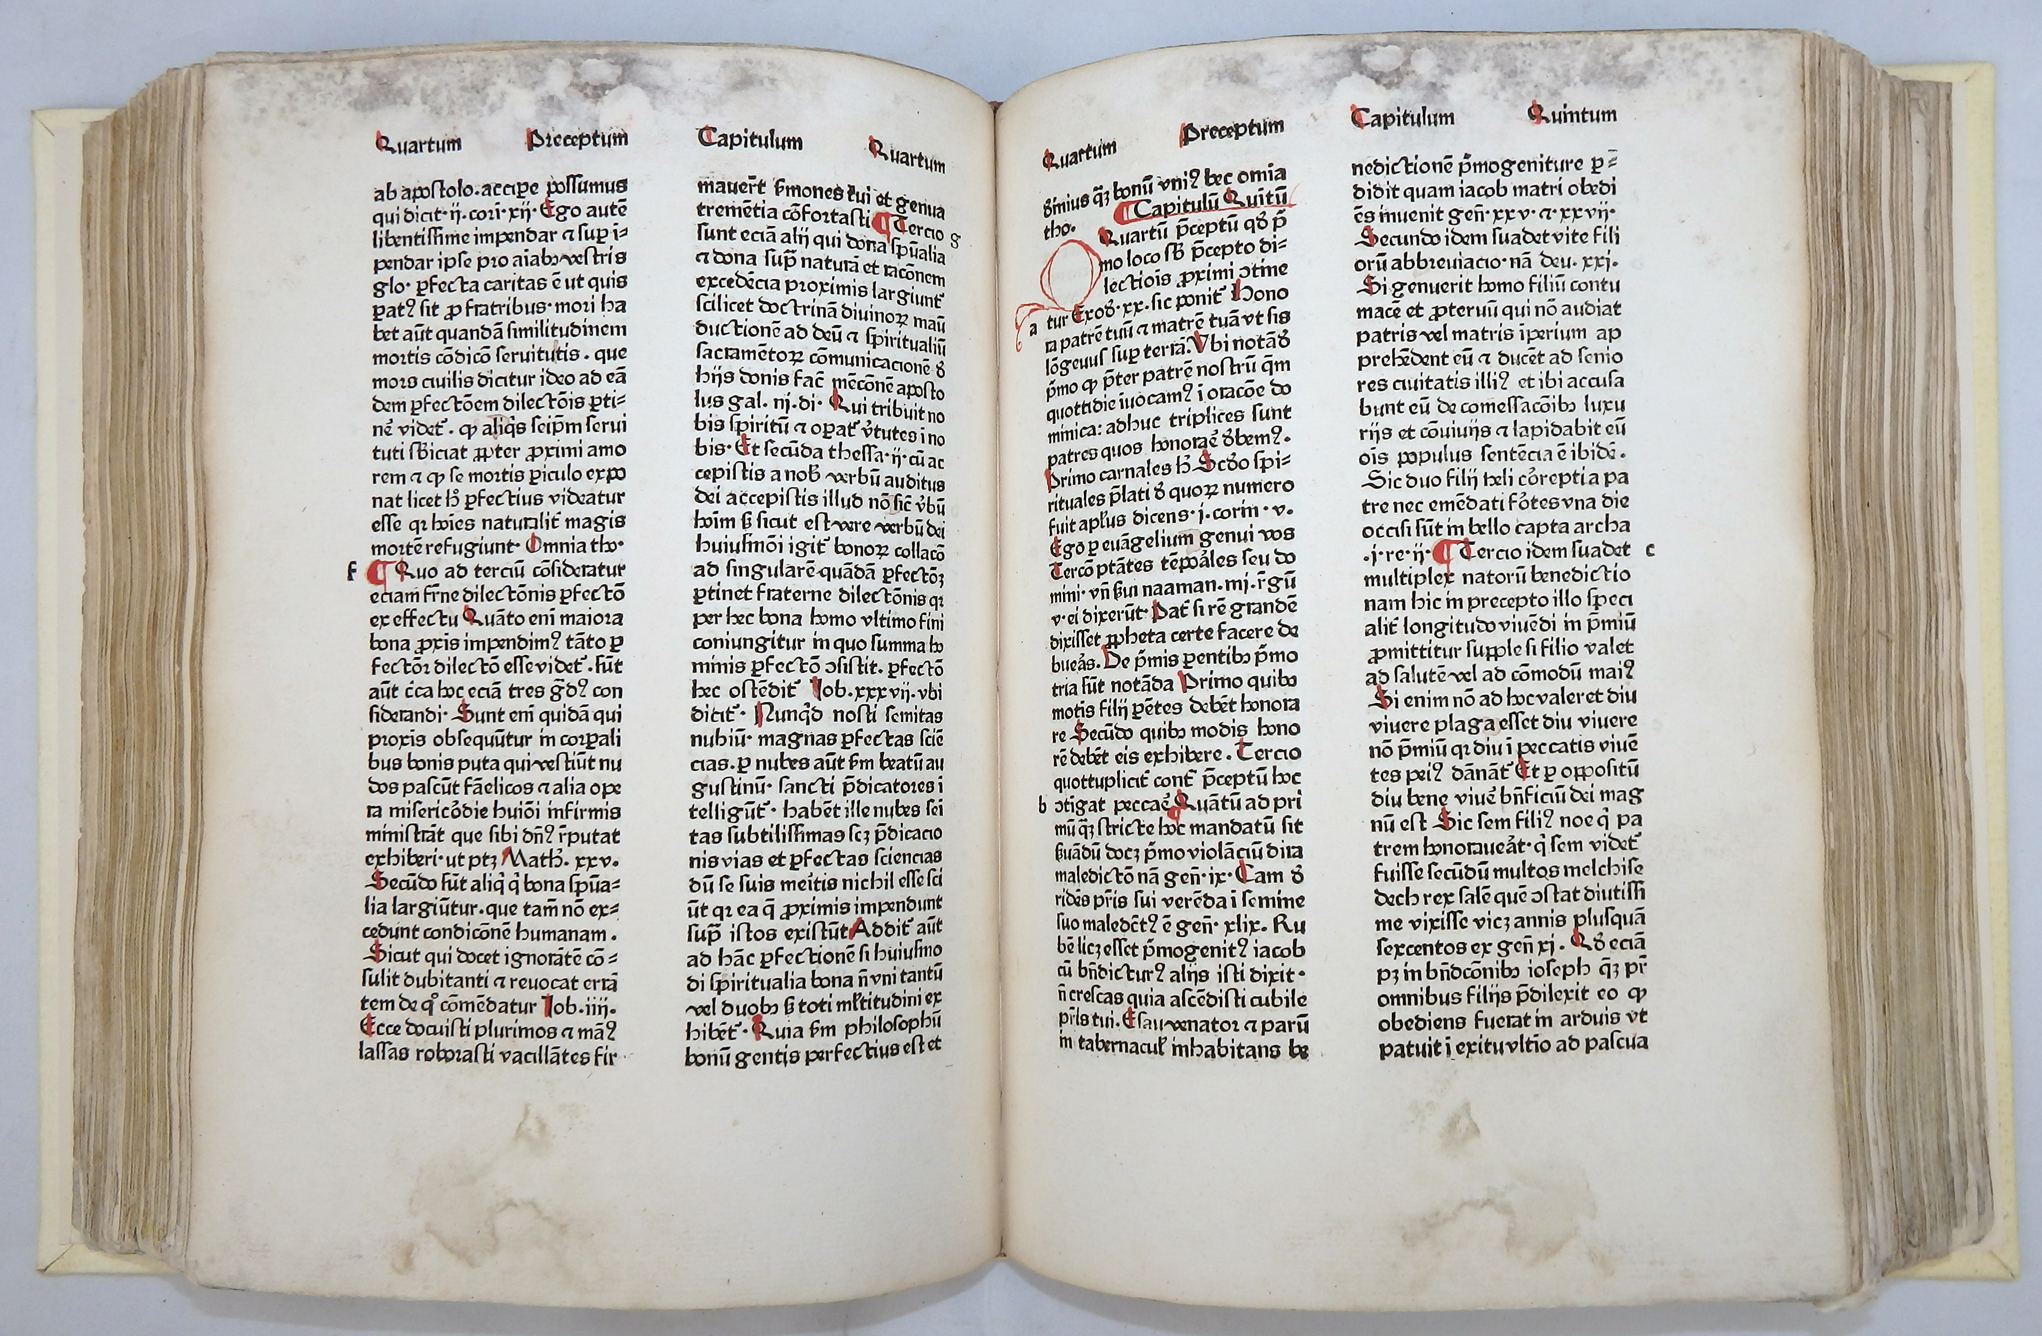 Quartum Preceptum
ab apostolo. accipe possumus
qui dicit· ij. cori· xij· Ego autē
libentissime impendar ⁊ suꝑ i⸗
pendar ipse pro aīabꝰ vestris
glo· ꝑfecta caritas ē ut quis
parꝰ sit ꝓ fratribus· mori ha
bet aūt quandā similitudinem
mortis cōdicō seruitutis · que
mors ciuilis dicitur ideo ad eā
dem ꝑfectōem dilectōis ꝑti⸗
nē videt̄ . ꝙ aliq̄s seip̄m serui
tuti sb̄iciat ꝓpter ꝓximi amo
rem ⁊ ꝙ se mortis ꝑiculo expo
nat licet hͦ ꝑfectius videatur
esse qꝛ hoīes naturalit̄ magis
mortē refugiunt· Omnia tho·
f ¶ Quo ad terciū cōsideratur
eciam fr̄ne dilectōnis ꝑfectō
ex effectu Quāto eni maiora
bona ꝓxis impendimꝰ tāto ꝑ
fectōr dilectō esse videt̄ . sūt
aūt c̄ca hoc eciā tres ḡdꝰ con
siderandi· Sunt eni quidā qui
proxis obsequūtur in corꝑali
bus bonis puta qui vestiūt nu
dos pascūt fāelicos ⁊ alia ope
ra misericōdie huiōi infirmis
ministrāt que sibi dn̄ꝰ r̄putat
exhiberi· ut ptꝫ Math̄. xxv.
Secūdo sūt aliq̄ q̄ bona spūa⸗
lia largiūtur. que tam̄ nō ex⸗
cedunt condicōnē humanam .
Sicut qui docet ignorātē cō⸗
sulit dubitanti ⁊ reuocat errā
tem de qͦ cōmēdatur Iob. iiij.
Ecce docuisti plurimos ⁊ māꝰ
lassas roborasti vacillātes fir
Capitulum Quartum
mauer̄t sm̄ones tui et genua
trementia cōfortasti ¶ Tercio g
sunt eciā alij qui dona spūalia
⁊ dona suꝑ naturā et racōnem
excedēcia proximis largiunt̄
scilicet doctrinā diuinoꝝ maū
ductionē ad deū ⁊ spiritualiū
sacramētoꝝ cōmunicacionē ꝺ̄
hijs donis fac̄ mēcōnē aposto
lus gal. iij. di· Qui tribuit no
bis spiritū ⁊ opat̄ v̄tutes i no
bis· Et secūda thessa· ij· cū ac
cepistis a nob̄ verbū auditus
dei accepistis illud nō sic̄ v̄bū
hoīm sꝫ sicut est vere verbū dei
huiusmōi igit̄ bonoꝝ collacō
ad singularē quādā ꝑfectōꝫ
ꝑtinet fraterne dilectōnis qꝛ
per hec bona homo vltimo fini
coniungitur in quo summa ho
minis ꝑfectō ↄsistit. ꝑfectō
hec ostēdit̄ Iob. xxxvij. vbi
dicit̄ · Nunqd̄ nosti semitas
nubiū· magnas ꝑfectas sciē
cias. ꝑ nubes aūt sm̄ beatū au
gustinū· sancti p̄dicatores i
telligūt̄ · habēt ille nubes sei
tas subtilissimas scꝫ p̄dicacio
nis vias et ꝑfectas sciencias
dū se suis mei̇tis nichil esse sci
ūt qꝛ ea q̄ ꝓximis impendunt
suꝑ istos existūt Addit̄ aūt
ad hāc ꝑfectionē si huiusmo
di spiritualia bona n̄ vni tantū
vel duobꝰ sꝫ toti ml̄titudini ex
hibēt̄ · Quia sm̄ philosophū
bonū gentis perfectius est et
Quartum Preceptum
ꝺ̄inius qꝫ̄ bonū vniꝰ hec omia
¶ Capitulū Quītū
tho.
Quartū p̄ceptū qd̄ p̄
mo loco sb̄ p̄cepto di⸗
lectiois ꝓximi ↄtine
a tur Exoꝺ̄· xx. sic ponit̄ Hono
ra patrē tuū ⁊ matrē tuā vt sis
lōgeuus suꝑ terrā. Vbi notād̄
p̄mo ꝙ p̄ter patrē nostrū q̄m
quottidie īuocamꝰ i oracōe do
minica: adhuc triplices sunt
patres quos honorae̅ ꝺ̄bemꝰ.
Primo carnales hͦ Scd̄o spi⸗
rituales p̄lati ꝺ̄ quoꝝ numero
fuit apl̄us dicens· j. corin · v.
Ego ꝑ euāgelium genui vos
Tercō ptātes tēpoāles seu do
mini· vn̄ sui naaman. iiij. r̄gū
v· ei dixerūt· Pat̄ si rē grandē
dixisset ꝓpheta certe facere de
bueās. De p̄mis ꝑentibꝰ p̄mo
tria sūt notāda Primo quibꝰ
motis filij ꝑētes debēt honora
re Secūdo quibꝰ modis hono
rē debēt eis exhibere . Tercio
quottuplicit̄ cont̄ p̄ceptū hoc
b ↄtigat peccae̅ ¶ Quātū ad pri
mū qꝫ̄ stricte hoc mandatū sit
s̄uādū docꝫ p̄mo violāciū dira
maledictō nā gen̄· ix· Cam ꝺ̄
ridēs pr̄is sui verēda i semine
suo maledc̄tꝰ ē gen̄· xlix. Ru
bē licꝫ esset p̄mogenitꝰ iacob
cū bn̄dicturꝰ alijs isti dixit·
n̄ crescas quia ascēdisti cubile
pr̄is tui. Esau venator ⁊ parū
in tabernacul̄ inhabitans be
Capitulum Quintum
nedictionē p̄mogeniture ꝑ⸗
didit quam iacob matri obedi
ēs inuenit gen̄· xxv· ⁊· xxvij·
Secundo idem suadet vite fili
orū abbreuiacio· nā deu. xxj.
Si genuerit homo filiū contu
macē et ꝓteruū qui nō audiat
patris vel matris īperium ap
prehēdent eū ⁊ ducēt ad senio
res ciuitatis illiꝰ et ibi accusa
bunt eū de comessacōibꝰ luxu
rijs et cōuiuijs ⁊ lapidabit eū
oīs populus sentēcia ē ibidē.
Sic duo filij heli cor̄epti a pa
tre nec emēdati fōtes vna die
occisi sūt in bello capta archa
.j· re· ij· ¶ Tercio idem suadet c
multiplex natorū benedictio
nam hic in precepto illo speci
alit̄ longitudo viuēdi in p̄miū
ꝓmittitur supple si filio valet
ad salutē vel ad cōmodū maiꝰ
Si enim nō ad hoc valeret diu
viuere plaga esset diu viuere
nō p̄miū qꝛ diu i peccatis viuē
tes peiꝰ dānāt̄ Et ꝑ oppositū
diu bene viue̅ bn̄ficiū dei mag
nū est Sic sem filiꝰ noe q̇ pa
trem honorauea̅t· q̇ sem videt̄
fuisse secūdū multos melchise
dech rex salē quē ↄstat diutissi
me vixisse vicꝫ annis plusquā
sexcentos ex gen̄ xj. Qd̄ eciā
pꝫ in bn̄dcōnibꝰ ioseph qꝫ̄ pr̄
omnibus filijs p̄dilexit eo ꝙ
obediens fuerat in arduis vt
patuit i exitu vltio ad pascua